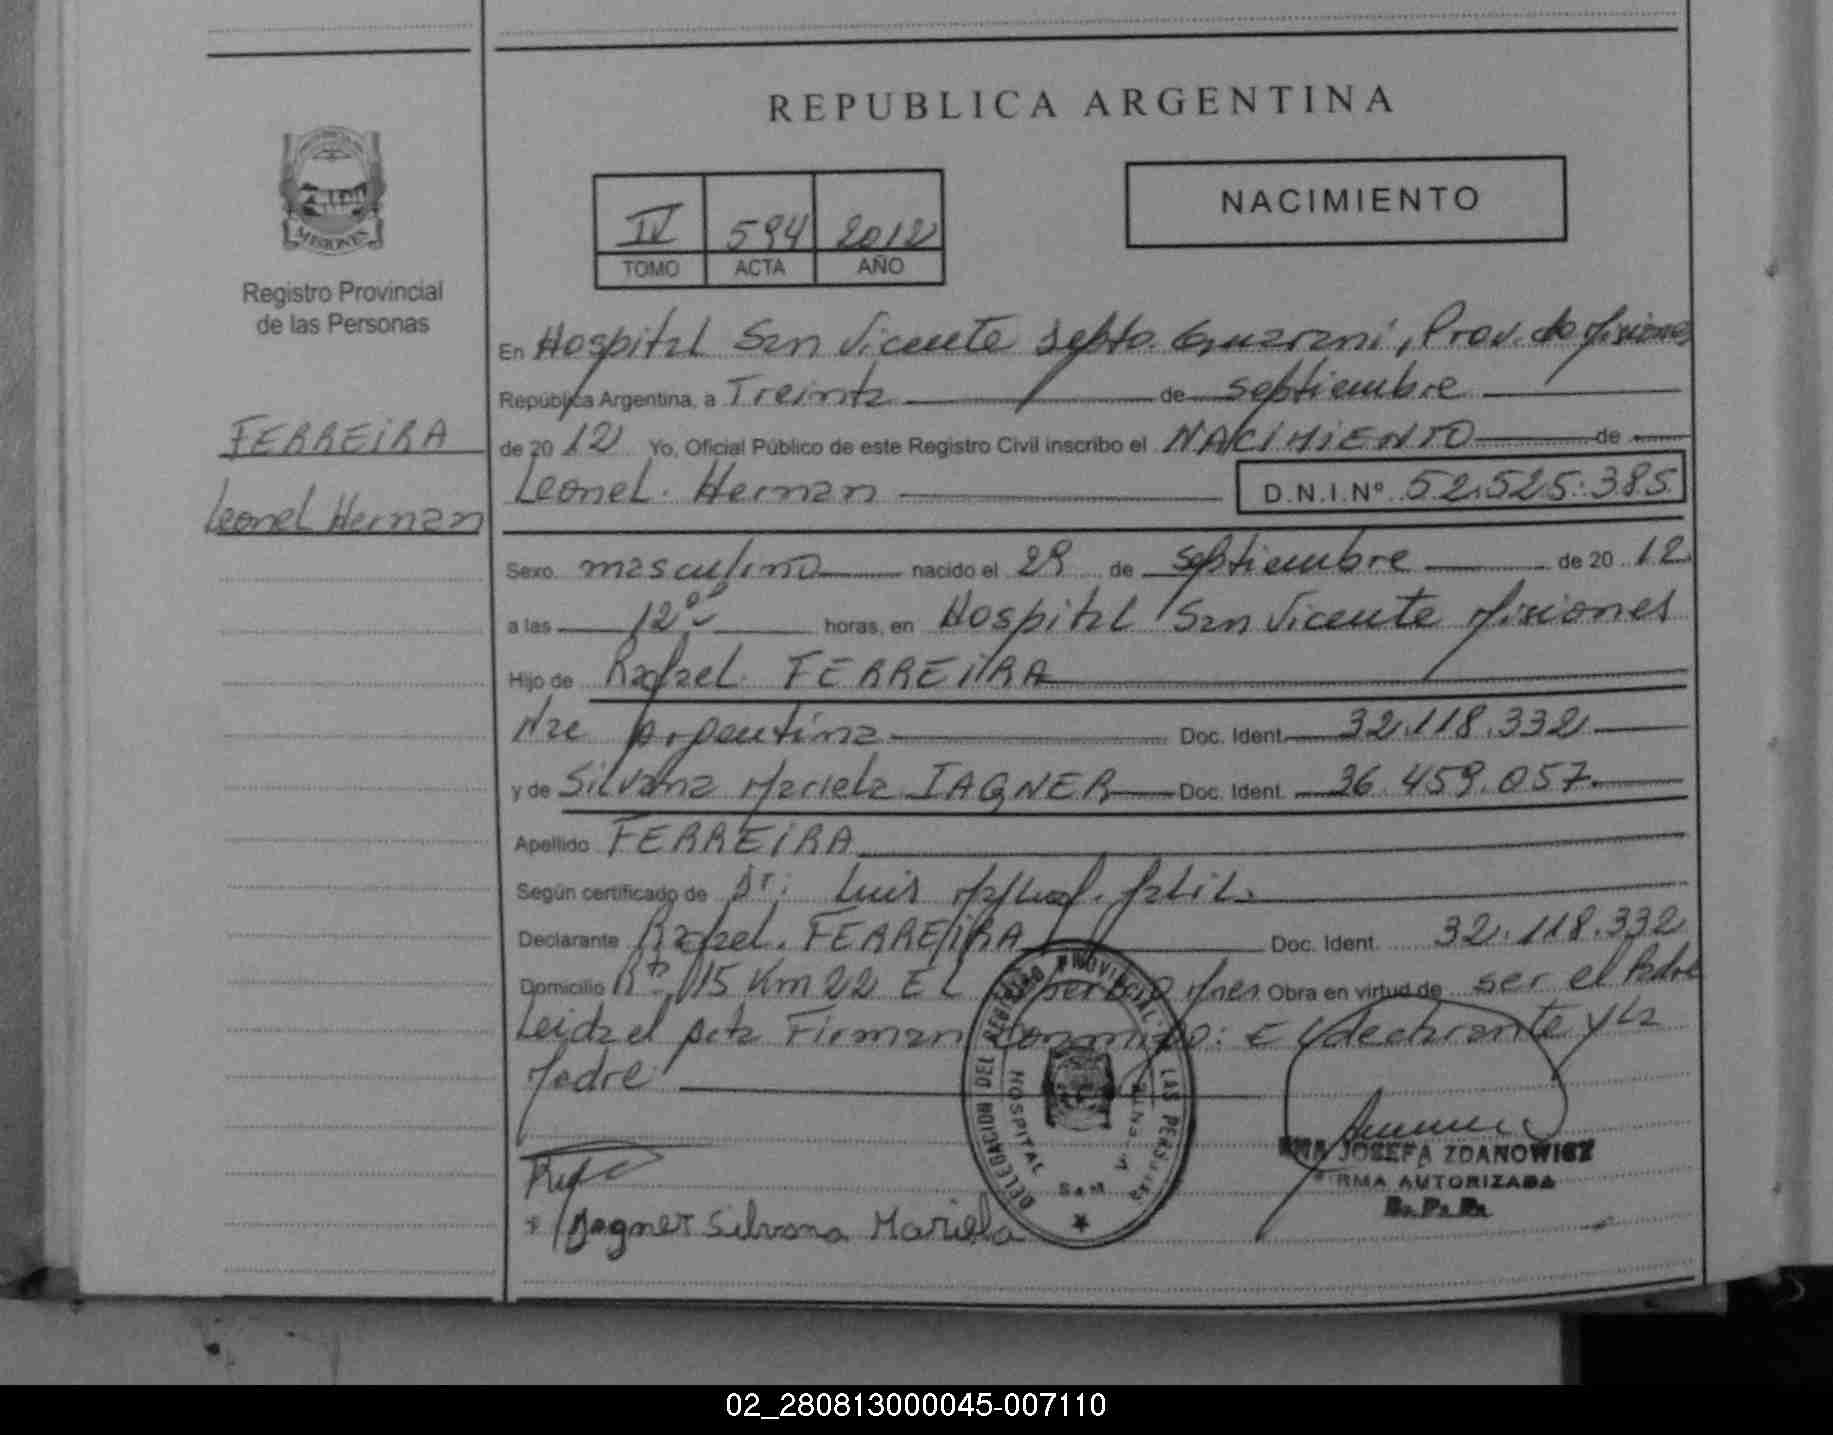 REPUBLICA ARGENTINA
MISIONES
Registro Provincial
de las Personas
IV 594 2012
TOMO ACTA AÑO
NACIMIENTO
FERREIRA
Leonel Hernan
En Hospital San Vicente Depto. Guarani, Prov. de Misiones
República Argentina, a Treinta de septiembre
de 2012 Yo, Oficial Público de este Registro Civil inscribo el NACIMIENTO de
Leonel Hernan D.N.I.Nº 52.525.385
Sexo masculino nacido el 29 de septiembre de 2012
a las 12 horas, en Hospital San Vicente Misiones
Hijo de Rafael FERREIRA
Nac Argentina Doc. Ident. 32.118.332
y de Silvana Mariela IAGNER Doc. Ident. 36.459.057
Apellido FERREIRA
Según certificado de Dr. Luis
Declarante Rafael FERREIRA Doc. Ident. 32.118.332
Domicilio Rta 15 Km 22 EL Mnes Obra en virtud de ser el Padre
Leida el Acta Firman Conmigo: El declarante y La
Madre
DELEGACION DEL REGISTRO PROVINCIAL LAS PERSONAS
HOSPITAL SAN VICENTE
JOSEFA ZDANOWICZ
FIRMA AUTORIZADA
Jagner Silvana Mariela
02_280813000045-007110